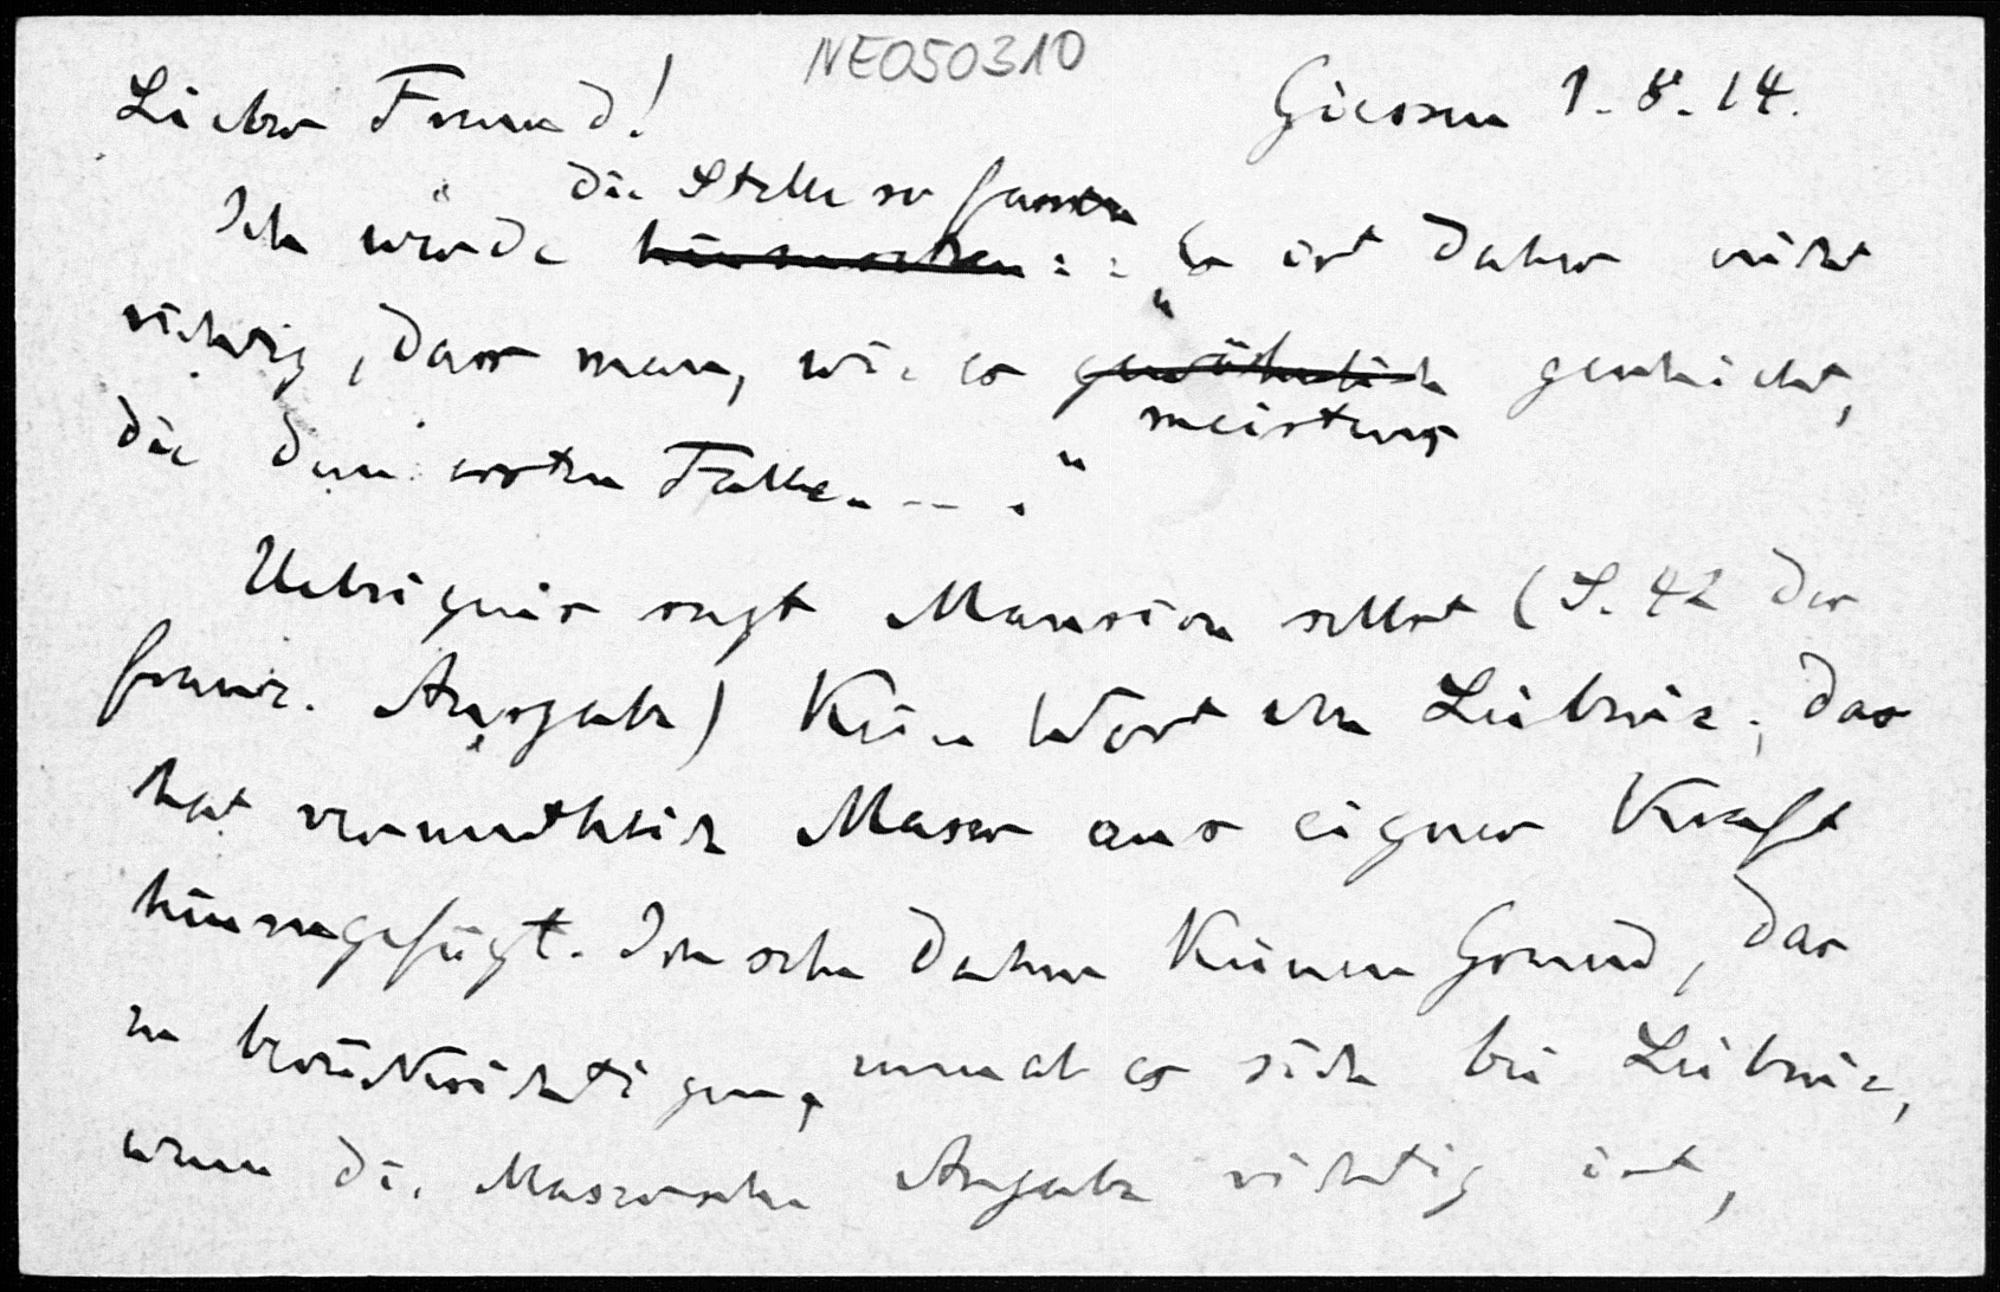 NE050310
Lieber Freund!
Giessen 1. 8. 14.
die Stelle so fassen
Ich würde hinzusetzen: : „Es ist daher nicht
richtig, dass man, wie es gewöhnlich geschieht,
meistens
die dem ersten Falle. -- . "
Uebrigens sagt Mansion selbst (S. 42 der
französ. Ausgabe) Kein Wort von Leibniz; das
hat vermuthlich Maser aus eigner Kraft
hinzugefügt. Ich sehe daher Keinen Grund, das
zu berücksichtigen, zumal es sich bei Leibniz,
wenn die Masersche Angabe richtig ist,